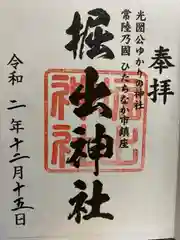 奉拝
光圀公ゆかりの神社
常陸乃國ひたちなか市鎮座
掘出神社
令和二年十二月十五日